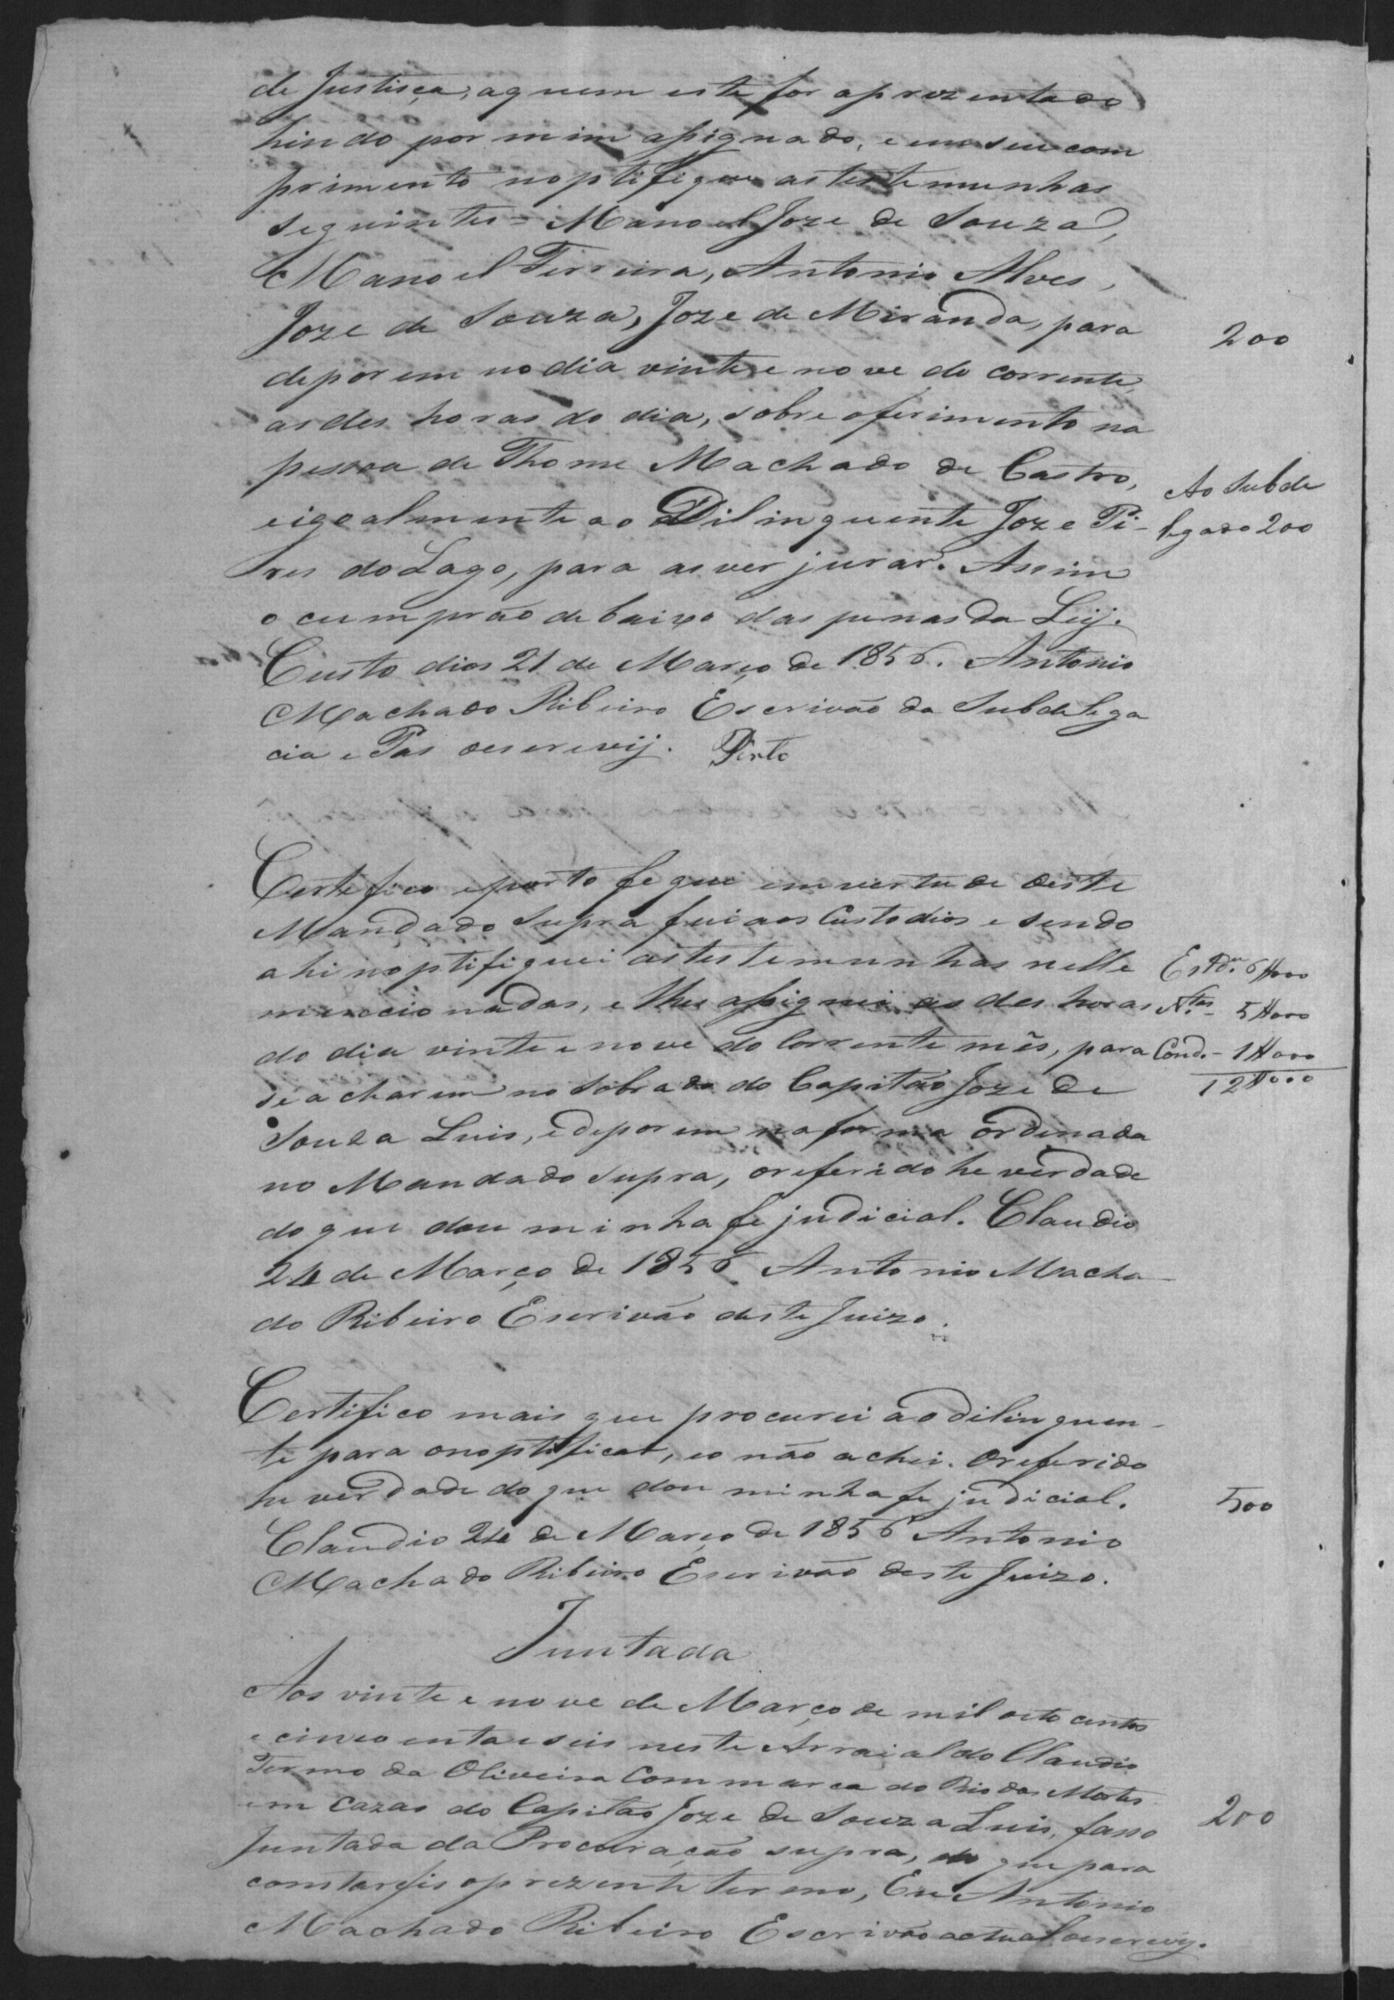 de Justisça, aquem este for aprezentado
hindo por mim assignado, e em seu com
primento noptifique as testemunhas
seguintes = Manoel Joze de Souza,
Manoel Ferreira, Antonio Alves,
Joze de Souza, Joze de Miranda, para
deporem no dia vinte e nove do corrente,
as des horas do dia, sobre oferimento na
pessoa de Thome Machado de Castro,
eigoalmente ao Dilinquente Joze Pi-
res do Lago, para as ver jurar. Assim
o cumprão debaixo das penas da Leij.
Custodios 21 de Março de 1856. Antonio
Machado Ribeiro Escrivão da Subdelega
cia e Pas oescrevij. Pinto
200
Ao Subde
legado 200
Certefico eporto fe que em vertude deste
Mandado supra fui aos Custodios e sendo
ahi noptifiquei as testemunhas nelle
mencionadas, e lhes assignei as des horas
do dia vinte e nove do Corrente mês, para
se acharem no sobrado do Capitão Joze de
Souza Luis, e deporem na forma ordenada
no Mandado supra, oreferido he verdade
do que dou minha fe judicial. Claudio
24 de Março de 1856 Antonio Macha-
do Ribeiro Escrivão deste Juizo.
Estda. 6#000
Ntas. - 5#000
Cond. - 1#000
12#000
Certifico mais que procurei ao dilinquen-
te para onoptificar, eo não achei. Oreferido
he verdade do que dou minha fe judicial.
Claudio 24 de Março de 1856 Antonio
Machado Ribeiro Escrivão deste Juizo.
500
Juntada
Aos vinte e nove de Março de mil oito centos
e cincoenta e seis neste Arraial do Claudio
Termo da Oliveira Commarca do Rio das Mortes
em cazas do Capitão Joze de Souza Luis, fasso
Juntada da Procuração supra, do que para
constar fis oprezente termo, Eu Antonio
Machado Ribeiro Escrivão actual oescrevy.
200